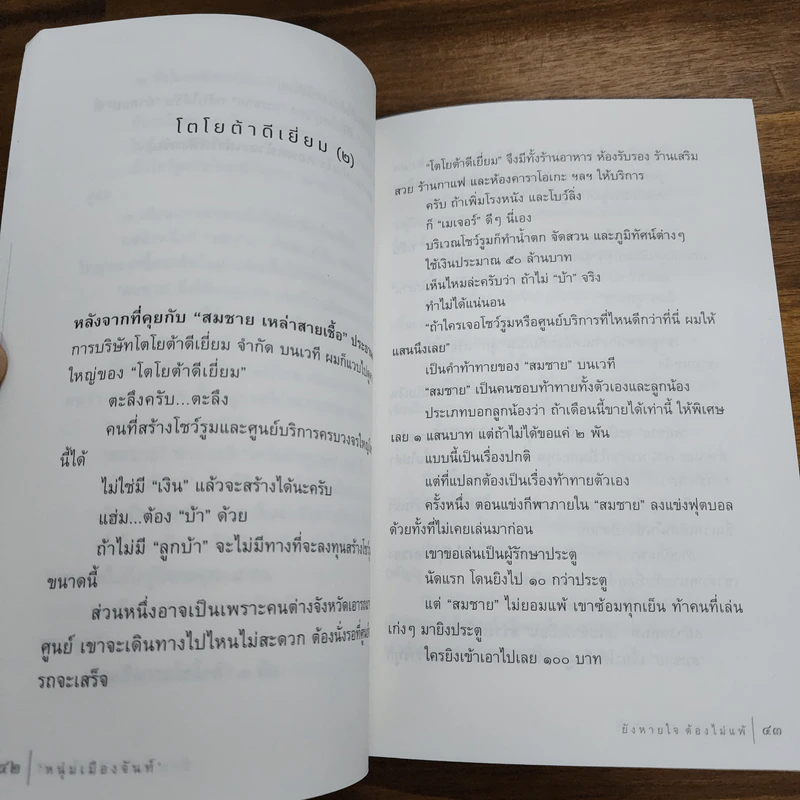 โตโยต้าดีเยี่ยม (๒)
หลังจากที่คุยกับ "สมชาย เหล่าสายเชื้อ"
การบริษัทโตโยต้าดีเยี่ยม จำกัด บนเวที ผมก็แวบไป
ใหญ่ของ "โตโยต้าดีเยี่ยม"
ตะลึงครับ...ตะลึง
คนที่สร้างโชว์รูมและศูนย์บริการครบวงจร
นี้ได้
ไม่ใช่มี "เงิน" แล้วจะสร้างได้นะครับ
แฮ่ม...ต้อง "บ้า" ด้วย
ถ้าไม่มี "ลูกบ้า" จะไม่มีทางที่จะลงทุนสร้าง
ขนาดนี้
ส่วนหนึ่งอาจเป็นเพราะคนต่างจังหวัดเอารถ
ศูนย์ เขาจะเดินทางไปไหนไม่สะดวก ต้องนั่งรอที่
รถจะเสร็จ
๔๒ | "หนุ่มเมืองจันท์"
"โตโยต้าดีเยี่ยม" จึงมีทั้งร้านอาหาร ห้องรับรอง ร้านเสริม
สวย ร้านกาแฟ และห้องคาราโอเกะ ฯลฯ ให้บริการ
ครับ ถ้าเพิ่มโรงหนัง และโบว์ลิ่ง
ก็ "เมเจอร์" ดีๆ นี่เอง
บริเวณโชว์รูมก็ทำน้ำตก จัดสวน และภูมิทัศน์ต่างๆ
ใช้เงินประมาณ ๕๐ ล้านบาท
เห็นไหมล่ะครับว่า ถ้าไม่ "บ้า" จริง
ทำไม่ได้แน่นอน
"ถ้าใครเจอโชว์รูมหรือศูนย์บริการที่ไหนดีกว่าที่นี่ ผมให้
แสนนึงเลย"
เป็นคำท้าทายของ "สมชาย" บนเวที
"สมชาย" เป็นคนชอบท้าทายทั้งตัวเองและลูกน้อง
ประเภทบอกลูกน้องว่า ถ้าเดือนนี้ขายได้เท่านี้ ให้พิเศษ
เลย ๑ แสนบาท แต่ถ้าไม่ได้ขอแค่ ๒ พัน
แบบนี้เป็นเรื่องปกติ
แต่ที่แปลกต้องเป็นเรื่องท้าทายตัวเอง
ครั้งหนึ่ง ตอนแข่งกีฬาภายใน "สมชาย" ลงแข่งฟุตบอล
ด้วยทั้งที่ไม่เคยเล่นมาก่อน
เขาขอเล่นเป็นผู้รักษาประตู
นัดแรก โดนยิงไป ๑๐ กว่าประตู
แต่ "สมชาย" ไม่ยอมแพ้ เขาซ้อมทุกเย็น ท้าคนที่เล่น
เก่งๆ มายิงประตู
ใครยิงเข้าเอาไปเลย ๑๐๐ บาท
ยังหายใจ ต้องไม่แพ้ | ๔๓